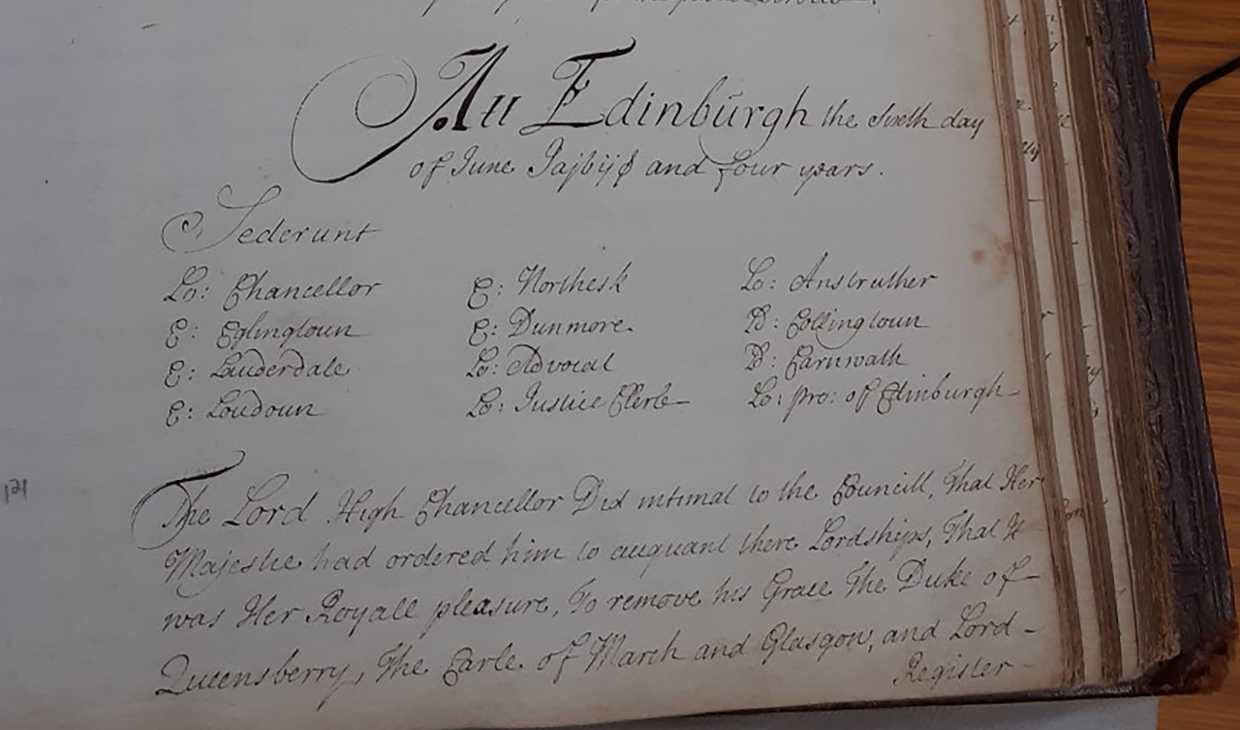 Att Edinburgh the sixth day
of June Jajvijc and four years.
Sederunt
Lo: Chancellor E: Northesk Lo: Anstruther
E: Eglingtoun E: Dunmore B: Collingtoun
E: Lauderdale Lo: Advocat B: Carnwath
E: Loudoun Lo: Justice Clerk Lo: pro: of Edinburgh
121
The Lord High Chancellor Did intimat to the Councill, That Her
Majestie had ordered him to acquant there Lordships, That It
was Her Royall pleasure, To remove his Grace The Duke of
Queensberry, The Earle of March and Glasgow, and Lord
Register